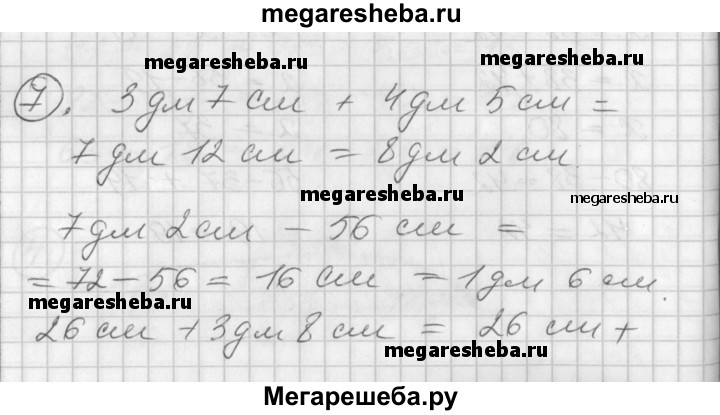 megaresheba.ru
megaresheba.ru megaresheba.ru
7. 3 дм 7 см + 4 дм 5 см =
7 дм 12 см = 8 дм 2 см.
megaresheba.ru megaresheba.ru
7 дм 2 см - 56 см =
= 72 - 56 = 16 см = 1 дм 6 см.
megaresheba.ru
26 см + 3 дм 8 см = 26 см +
megaresheba.ru
Мегарешеба.ру